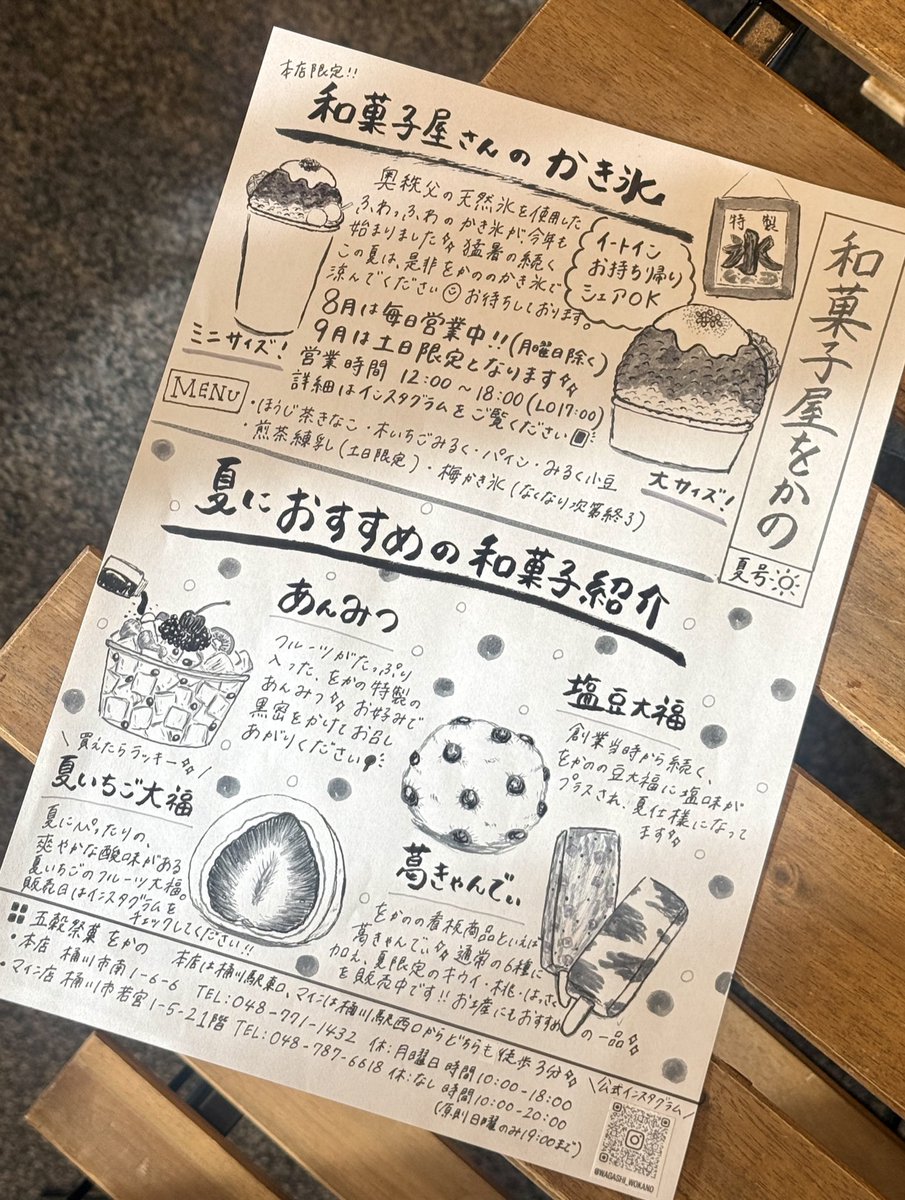 本店限定!!
和菓子屋さんの かき氷
奥秩父の天然氷を使用した
ふわっふわの かき氷が、今年も
始まりました 猛暑の続く
この夏は、是非をかののかき氷で
涼んでください お待ちしております。
イートイン
お持ち帰り
シェアOK
8月は毎日営業中!!(月曜日除く)
9月は土日限定となります
営業時間 12:00〜18:00(LO17:00)
詳細はインスタグラムをご覧ください
ミニサイズ!
大サイズ!
MENU
・ほうじ茶きなこ・木いちごみるく・パイン・みるく小豆
・煎茶練乳(土日限定)・梅かき氷(なくなり次第終了)
特製
氷
和菓子屋をかの
夏号
夏におすすめの和菓子紹介
あんみつ
フルーツがたっぷり
入った、をかの特製の
あんみつ お好みで
黒密をかけてお召し
あがりください
塩豆大福
創業当時から続く、
をかのの豆大福に塩味が
プラスされ、夏仕様になって
ます
\買えたらラッキー/
夏いちご大福
夏にぴったりの、
爽やかな酸味がある
夏いちごのフルーツ大福。
販売日はインスタグラムを
チェックしてください!!
葛きゃんでぃ
をかのの看板商品といえば
葛きゃんでぃ 通常の6種に
加え、夏限定のキウイ・桃・はっさく
を販売中です!! お土産にもおすすめ の一品
五穀祭菓 をかの 本店は桶川駅東口、マインは桶川駅西口からどちらも徒歩3分
・本店 桶川市南1-6-6 TEL:048-771-1432 休:月曜日 時間10:00-18:00
・マイン店 桶川市若宮1-5-2 1階 TEL:048-787-6618 休:なし 時間10:00-20:00
(原則日曜のみ19:00まで)
\公式インスタグラム/
@WAGASHI_WOKANO